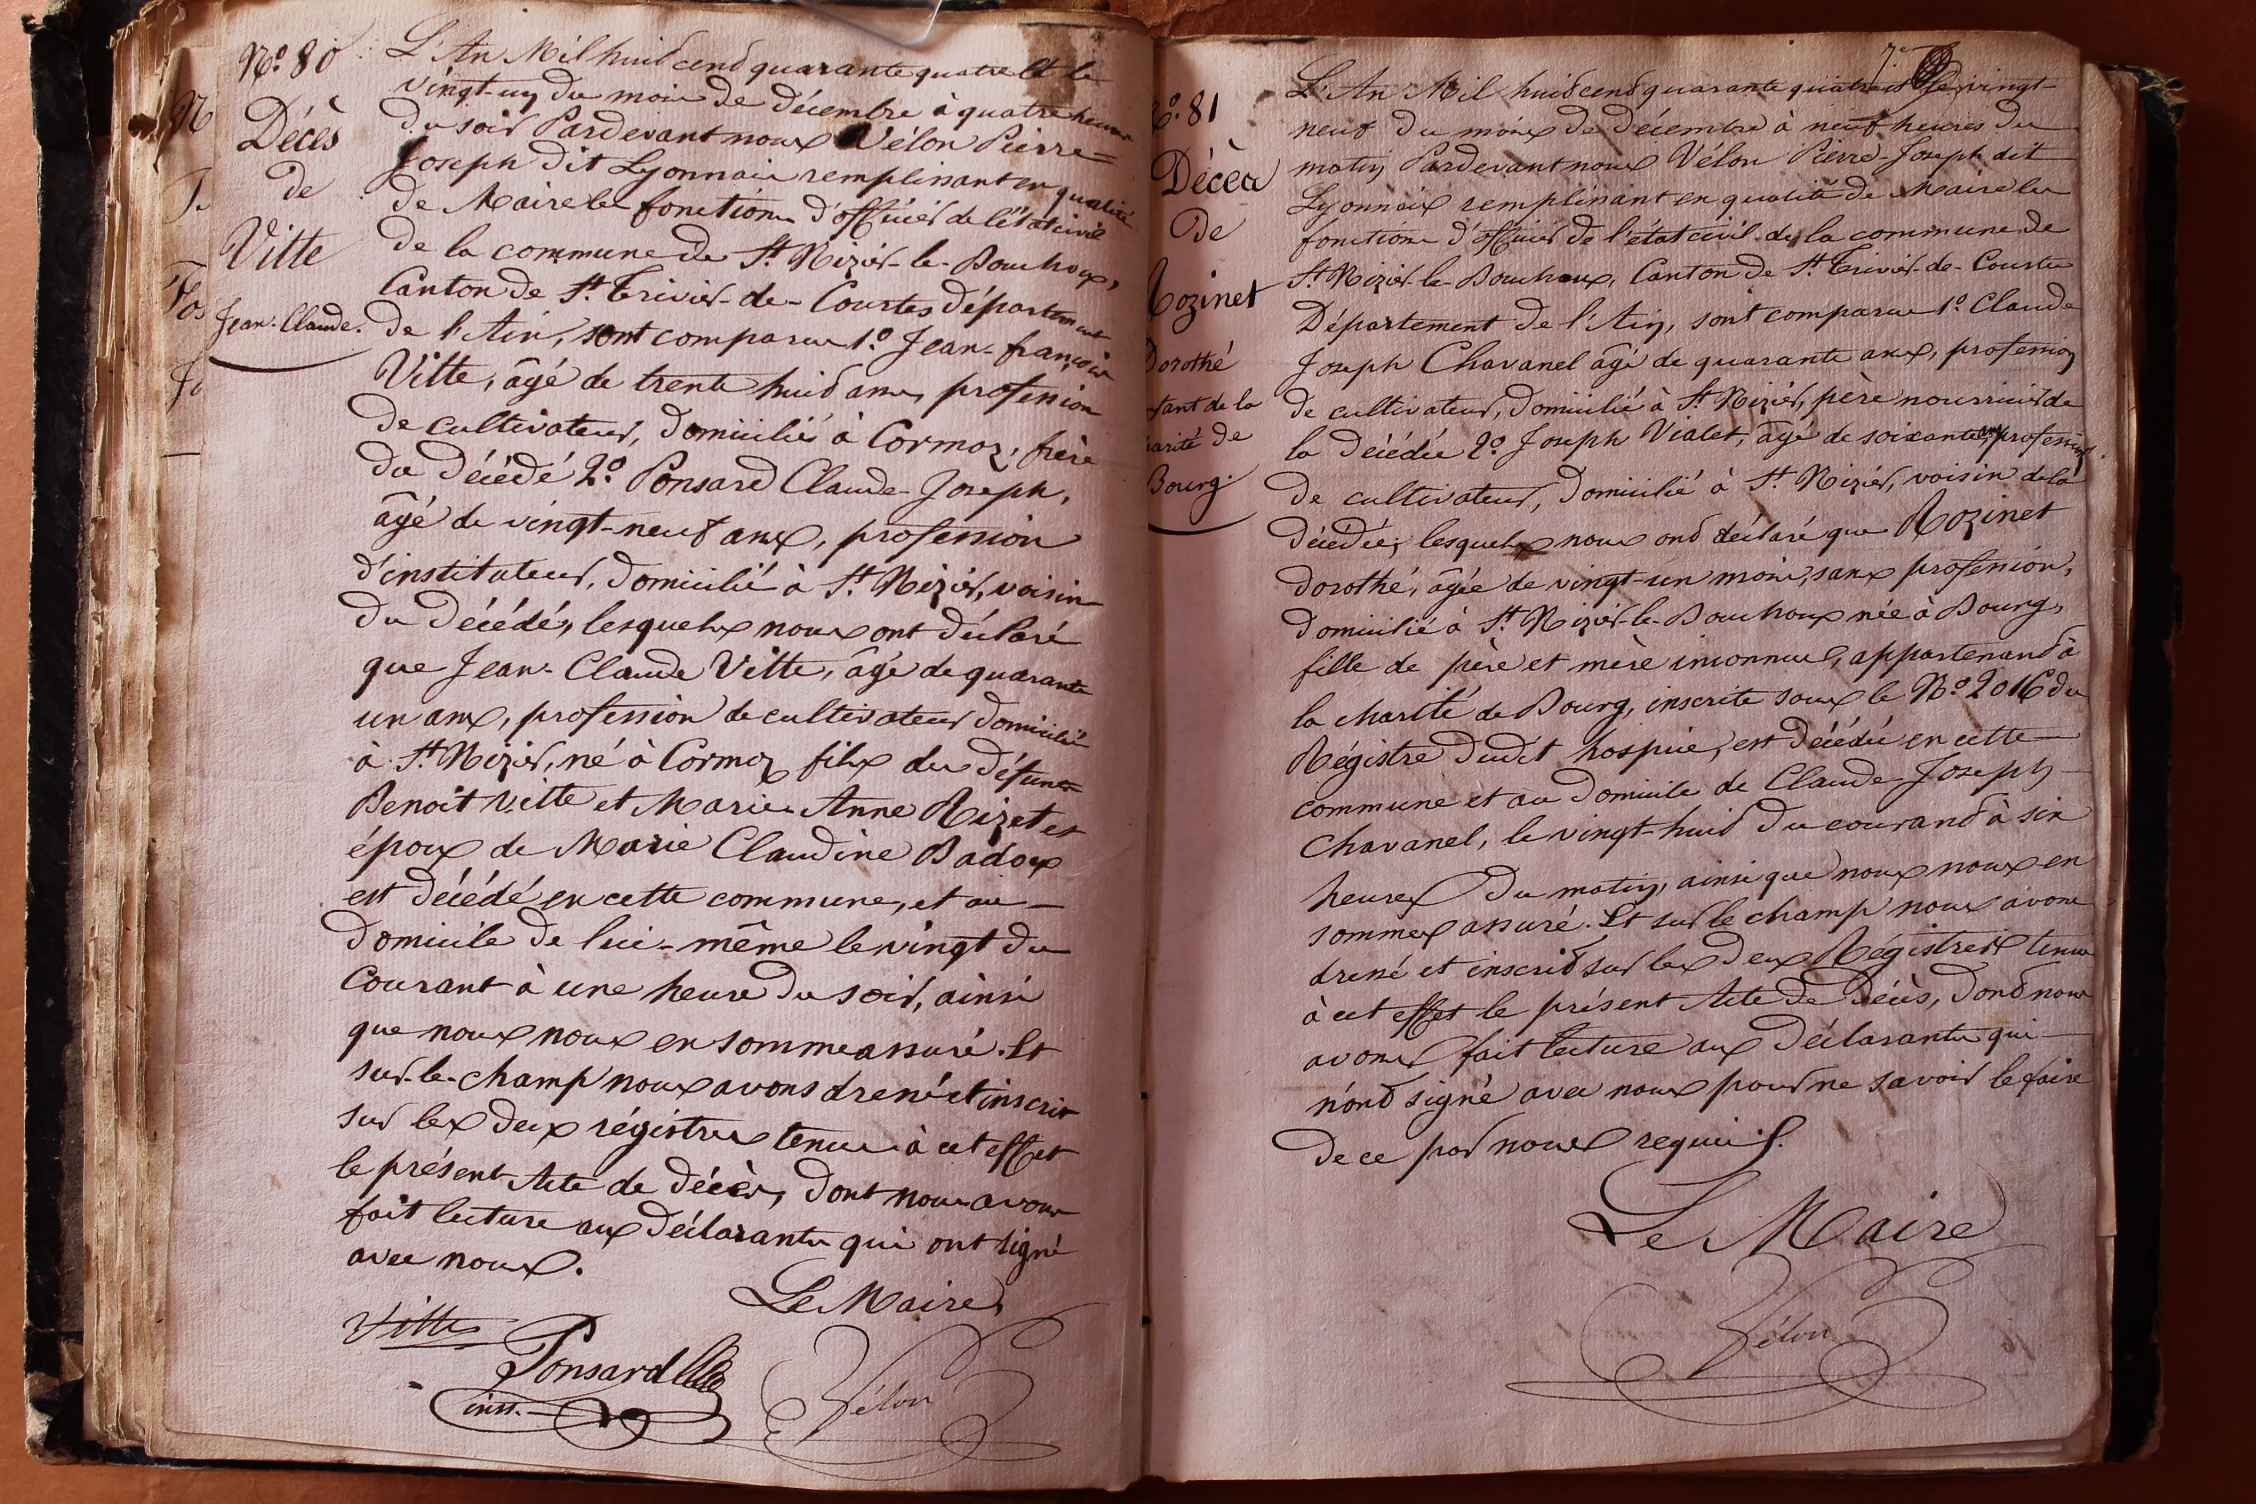 N.º 80
Décès
de
Vitte
Jean-Claude.
L'An Mil huit cent quarante quatre et le
vingt-un du mois de décembre à quatre heures
du soir Pardevant nous Vélon Pierre=
Joseph dit Lyonnais remplissant en qualité
de Maire les fonctions d'officier de l'état civil
de la commune de St Nizier-le-Bouchoux,
Canton de St Trivier-de-Courtes département
de l'Ain, sont comparus 1.º Jean-françois
Vitte, âgé de trente huit ans, profession
de cultivateur, domicilié à Cormoz, frère
du décédé 2.º Ponsard Claude-Joseph,
âgé de vingt-neuf ans, profession
d'instituteur, domicilié à St Nizier, voisin
du décédé, lesquels nous ont déclaré
que Jean-Claude Vitte, âgé de quarante
un ans, profession de cultivateur domicilié
à St Nizier, né à Cormoz fils des défunts
Benoît Vitte et Marie-Anne Rizet et
époux de Marie Claudine Badoux
est décédé en cette commune, et au
domicile de lui-même le vingt du
courant à une heure du soir, ainsi
que nous nous en somme assuré. Et
sur-le-champ nous avons dressé et inscrit
sur les deux régistres tenus à cet effet
le présent Acte de décès, dont nous avons
fait lecture aux déclarants qui ont signé
avec nous.
Le Maire,
Vitte
Ponsard
inst.
Vélon
º 81
Décès
de
Rozinet
Dorothé
fant de la
arité de
Bourg.
7.e
L'An Mil huit cent quarante quatre et le vingt-
neuf du mois de décembre à neuf heures du
matin, Pardevant nous Vélon Pierre-Joseph dit
Lyonnais remplissant en qualité de Maire les
fonctions d'officier de l'état civil de la commune de
St Nizier-le-Bouchoux, Canton de St Trivier-de-Courtes
Département de l'Ain, sont comparus 1.º Claude
Joseph Chavanel âgé de quarante ans, profession
de cultivateur, domicilié à St Nizier, père nourricier de
la décédée 2.º Joseph Vialet, âgé de soixante ans profession
de cultivateur, domicilié à St Nizier, voisin de la
décédée, lesquels nous ont déclaré que Rozinet
dorothé, âgée de vingt-un mois, sans profession,
domicilié à St Nizier-le-Bouchoux née à Bourg,
fille de père et mère inconnus, appartenant à
la charité de Bourg, inscrite sous le N.º 2016 du
Régistre dudit hospice, est décédée en cette
commune et au domicile de Claude-Joseph
Chavanel, le vingt-huit du courant à six
heures du matin, ainsi que nous nous en
sommes assuré. Et sur le champ nous avons
dressé et inscrit sur les deux Régistres tenus
à cet effet le présent Acte de Décès, dont nous
avons fait lecture aux déclarants qui
n'ont signé avec nous pour ne savoir le faire
de ce par nous requis.
Le Maire
Vélon